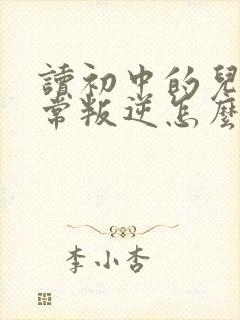 讀初中的兒
常叛逆怎麼
李小杏